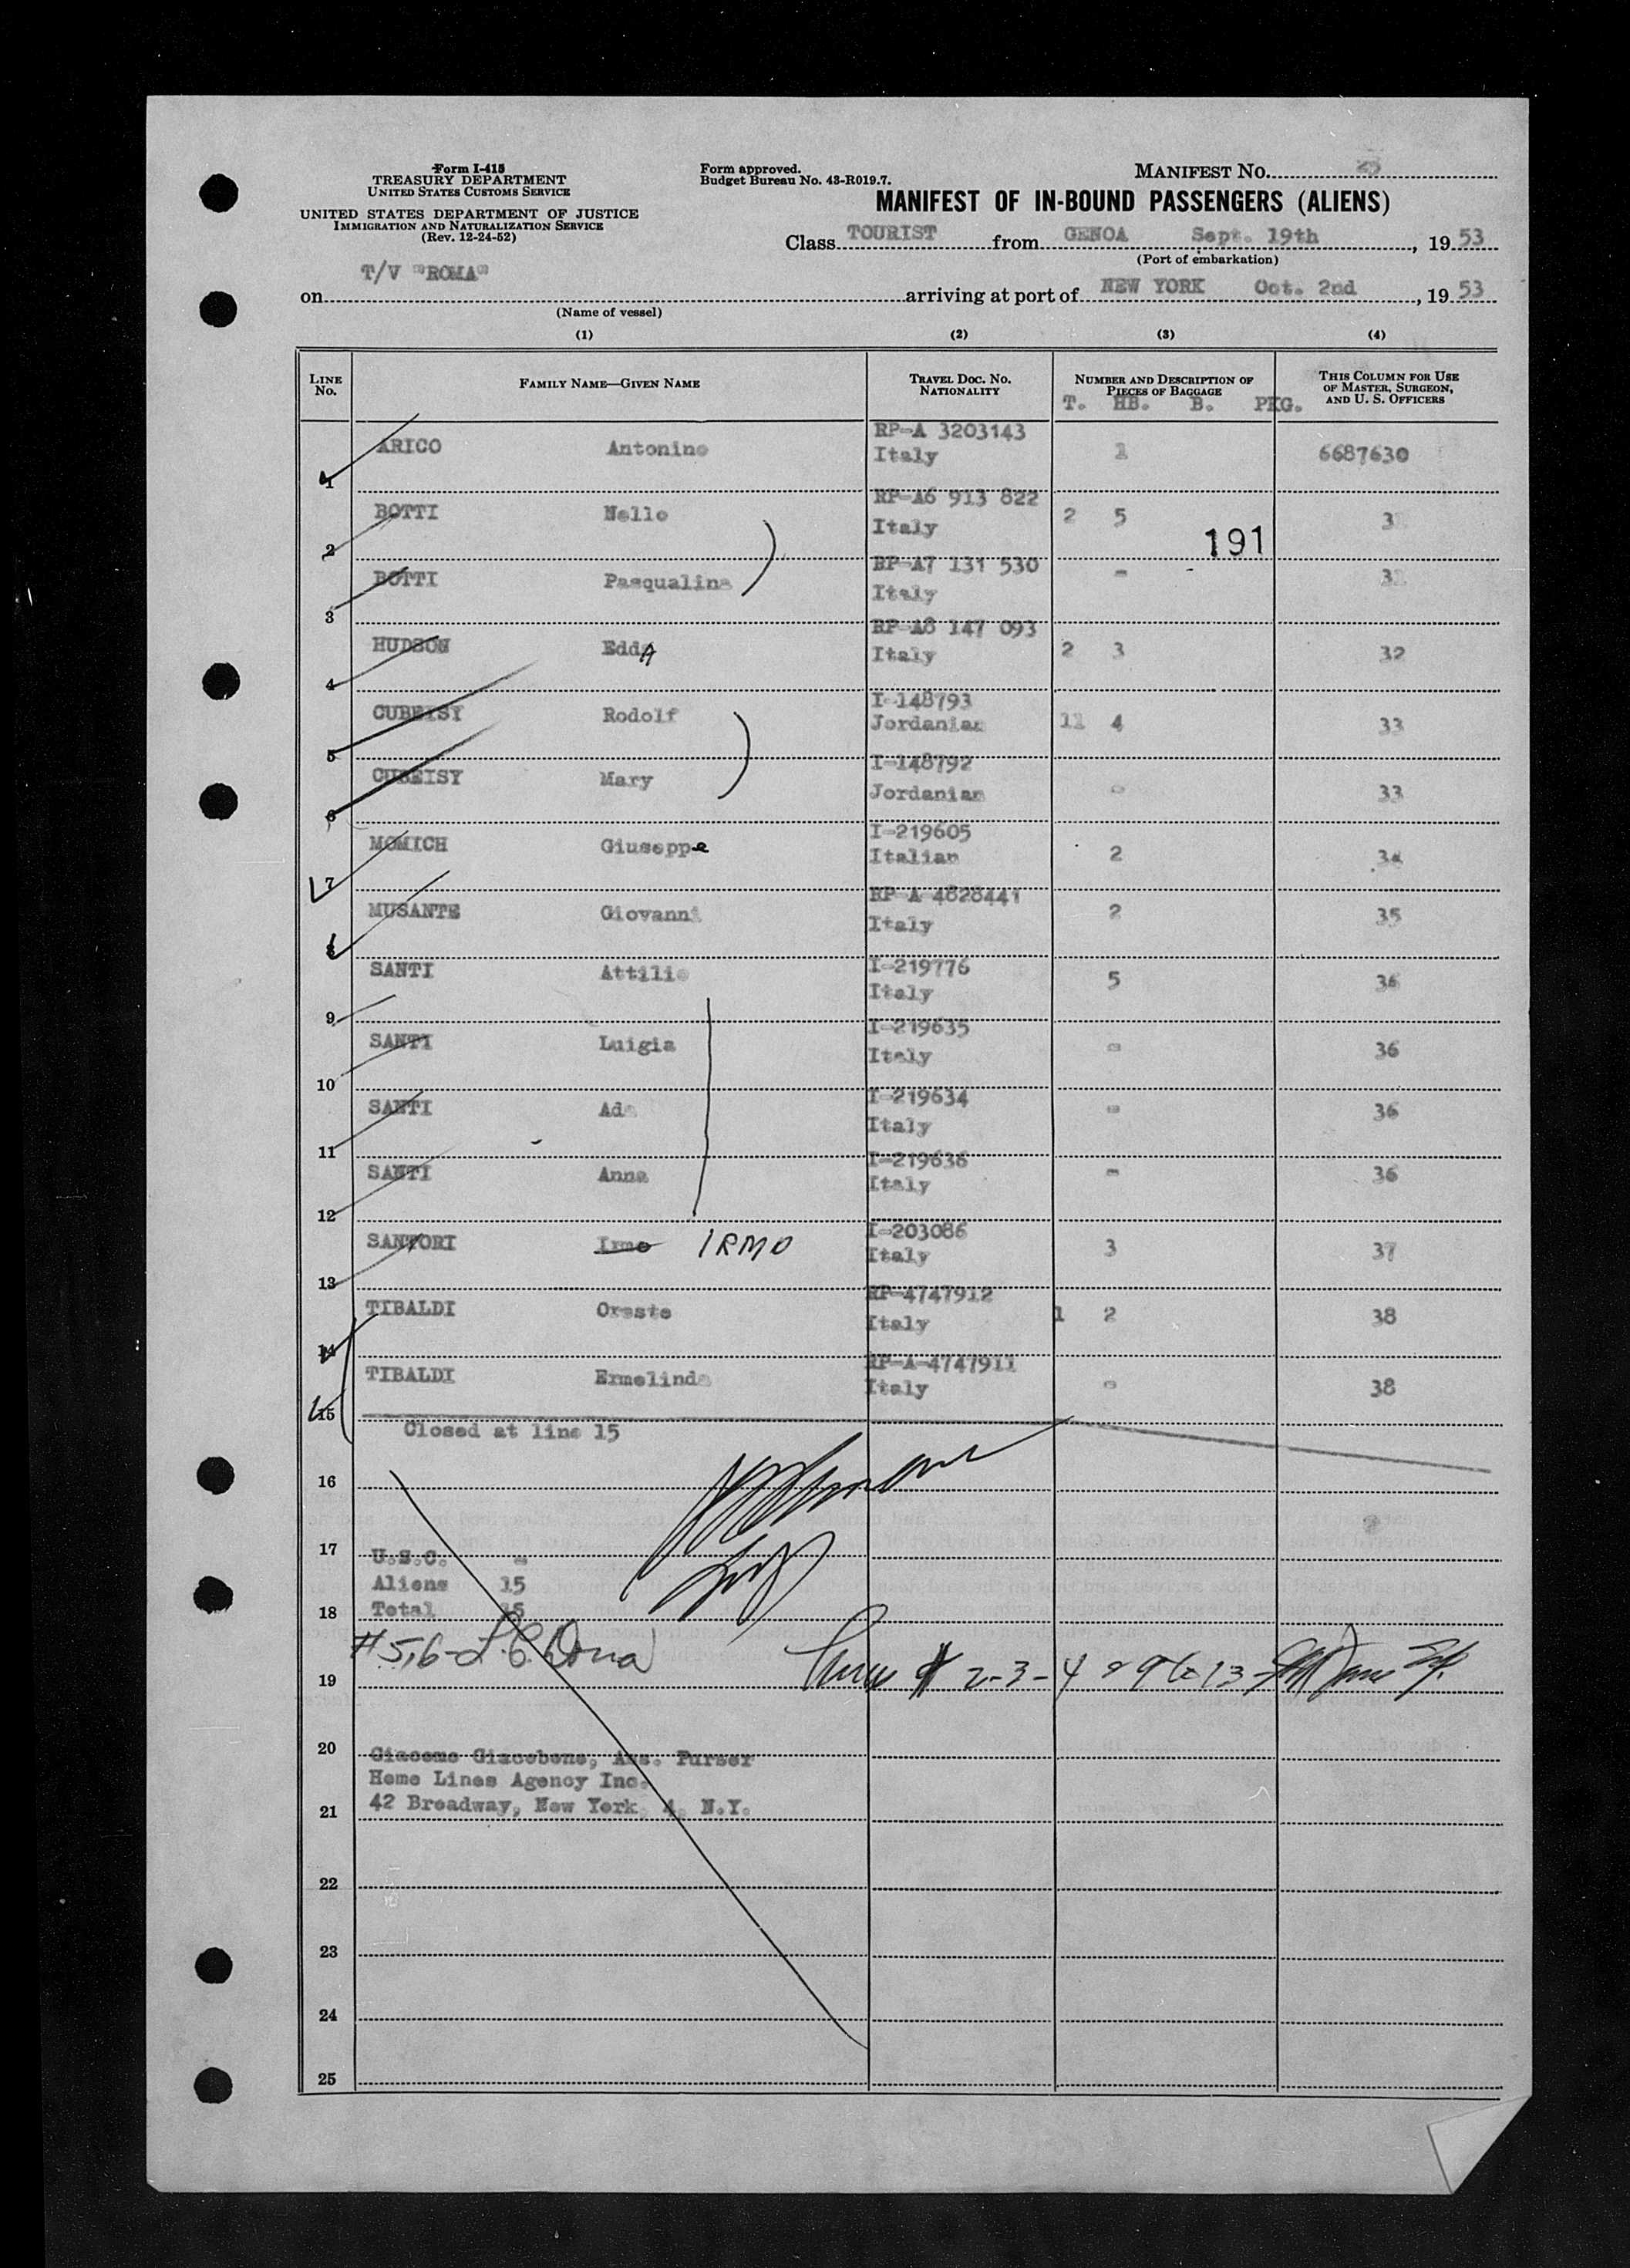 Form I-415
TREASURY DEPARTMENT
UNITED STATES CUSTOMS SERVICE
UNITED STATES DEPARTMENT OF JUSTICE
IMMIGRATION AND NATURALIZATION SERVICE
(Rev. 12-24-52)
Form approved.
Budget Bureau No. 43-R019.7.
MANIFEST NO.
MANIFEST OF IN-BOUND PASSENGERS (ALIENS)
Class TOURIST from GENOA Sept. 19th, 1953
(Port of embarkation)
on T/V "ROMA" arriving at port of NEW YORK Oct. 2nd, 1953
(Name of vessel)
(1) (2) (3) (4)
LINE No. FAMILY NAME—GIVEN NAME TRAVEL DOC. NO. NATIONALITY NUMBER AND DESCRIPTION OF PIECES OF BAGGAGE THIS COLUMN FOR USE OF MASTER, SURGEON, AND U. S. OFFICERS
T. HB. B. PKG.
1 ARICO Antonino RP-A 3203143 Italy 1 6687630
2 BOTTI Nello RP-A6 913 822 Italy 2 5 3
191
3 BOTTI Pasqualina RP-A7 131 530 Italy - 3
4 HUDSON Edda RP-A8 147 093 Italy 2 3 32
5 CUBEISY Rodolf I-148793 Jordanian 11 4 33
6 CUBEISY Mary I-148792 Jordanian - 33
7 MOMICH Giuseppe I-219605 Italian 2 34
8 MUSANTE Giovanni RP-A 4828441 Italy 2 35
9 SANTI Attilio I-219776 Italy 5 36
10 SANTI Luigia I-219635 Italy - 36
11 SANTI Ada I-219634 Italy - 36
12 SANTI Anna I-219636 Italy - 36
13 SANTORI Irmo IRMO I-203086 Italy 3 37
14 TIBALDI Oreste RP-4747912 Italy 1 2 38
15 TIBALDI Ermelinda RP-A-4747911 Italy - 38
Closed at line 15
16
17
U.S.C. -
Aliens 15
18
Total 15
#5,6-
19
# 2-3-4
20
Giacomo Giacobone, Ass. Purser
Home Lines Agency Inc.
21
42 Broadway, New York, 4, N.Y.
22
23
24
25